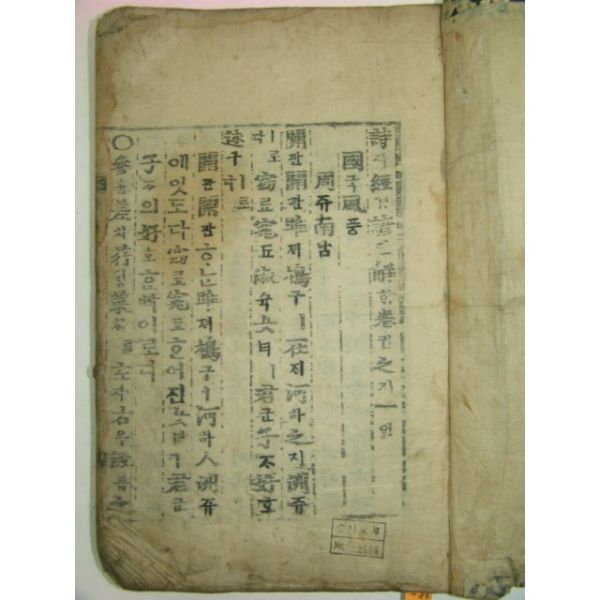 詩시經경諺언解ᄒᆡ卷권之지一일
國국風풍
周쥬南남
關관關관雎져鳩구ㅣ在ᄌᆡ河하之지洲쥬
ㅣ로다窈료窕됴淑슉女녀ㅣ君군子ᄌᆞ好호
逑구ㅣ로다
關관關관ᄒᆞᄂᆞᆫ雎져鳩구ㅣ河하ㅅ洲쥬
에잇도다窈료窕됴ᄒᆞᆫ淑슉女녀ㅣ君군
子ᄌᆞ의好호ᄒᆞᆫᄧᅡᆨ이로다
○參참差치荇ᄒᆡᆼ菜ᄎᆡ를左자右우流류之지
No.